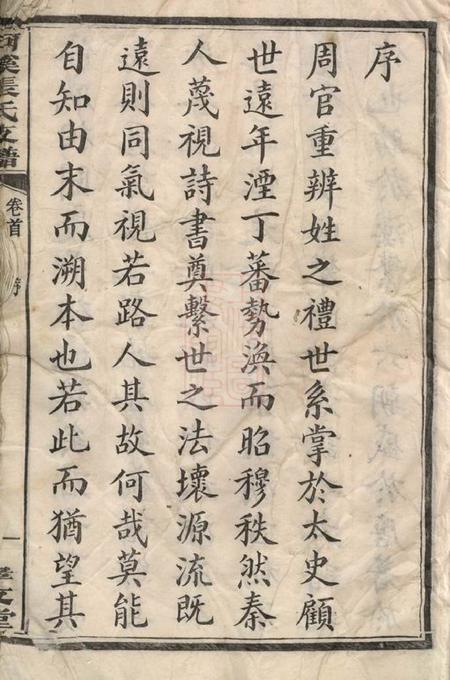 序
周官重辨姓之禮世系掌於太史顧
世遠年湮丁蕃勢渙而昭穆秩然秦
人蔑視詩書奠繫世之法壞源流既
遠則同氣視若路人其故何哉莫能
自知由末而溯本也若此而猶望其
溪張氏支譜
卷首
序
一
文堂